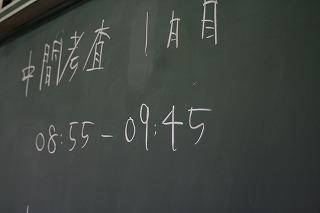 中間考査 1日目
08:55-09:45